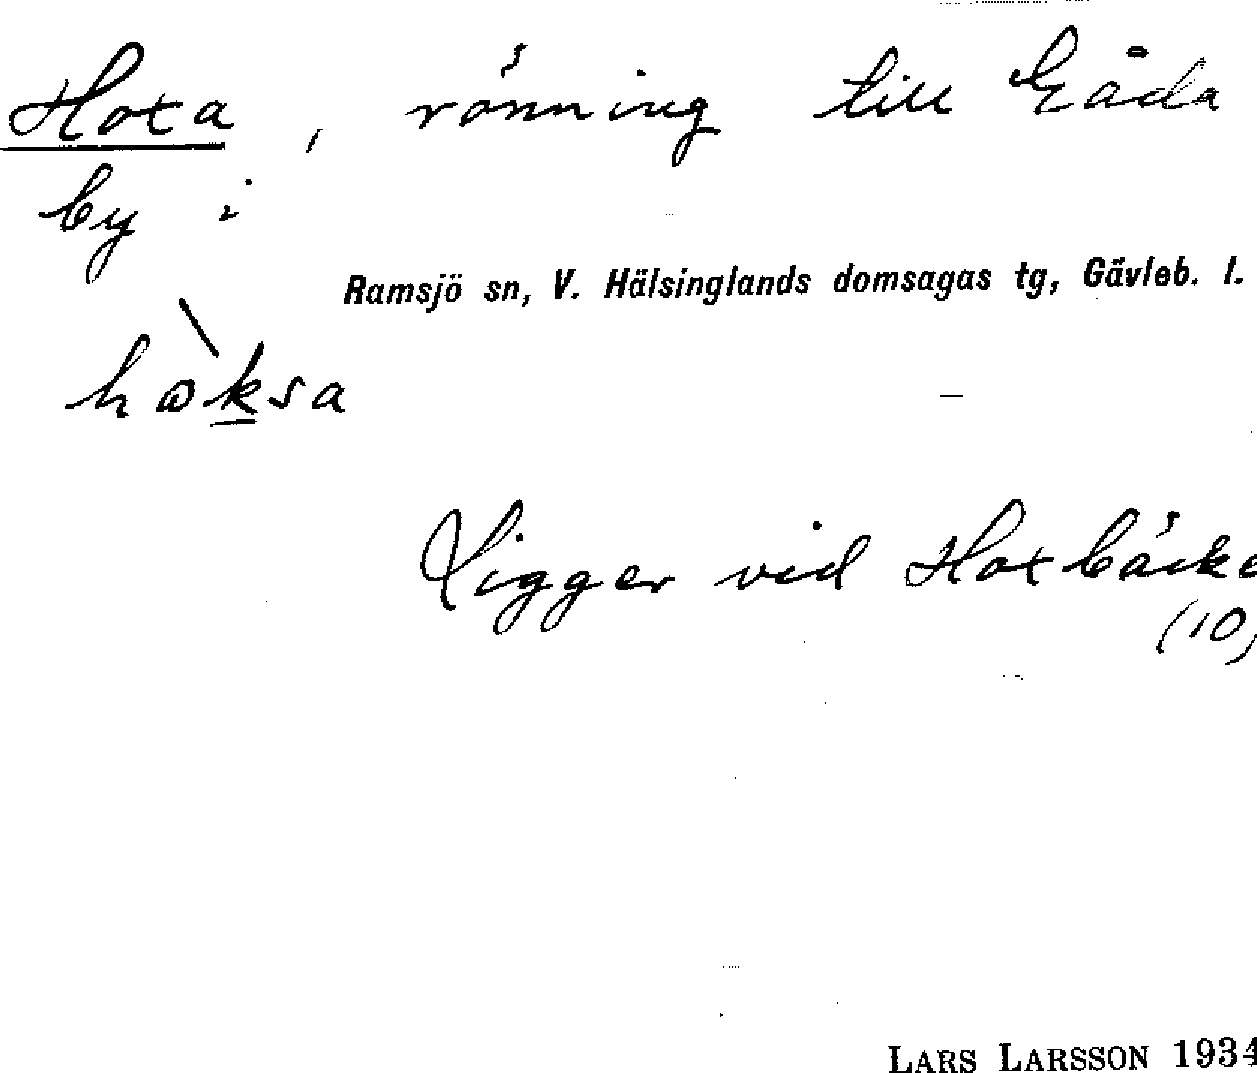 Hoxa, rönning till Gåda
by i
Ramsjö sn, V. Hälsinglands domsagas tg, Gävleb. l.
hωksa
Ligger vid Hoxbäcke
(10)
LARS LARSSON 1934